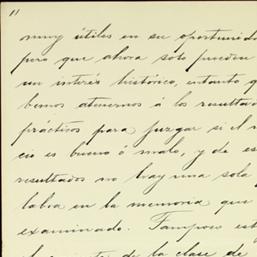 11
muy útiles en su oportunida
pero que ahora solo pueden
un interés histórico, entanto q
bemos atenernos á los resultad
prácticos para juzgar si el n
cio es bueno ó malo, y de es
resultados no hay una sola p
labra en la memoria que
examinado. Tampoco est
de la clase de